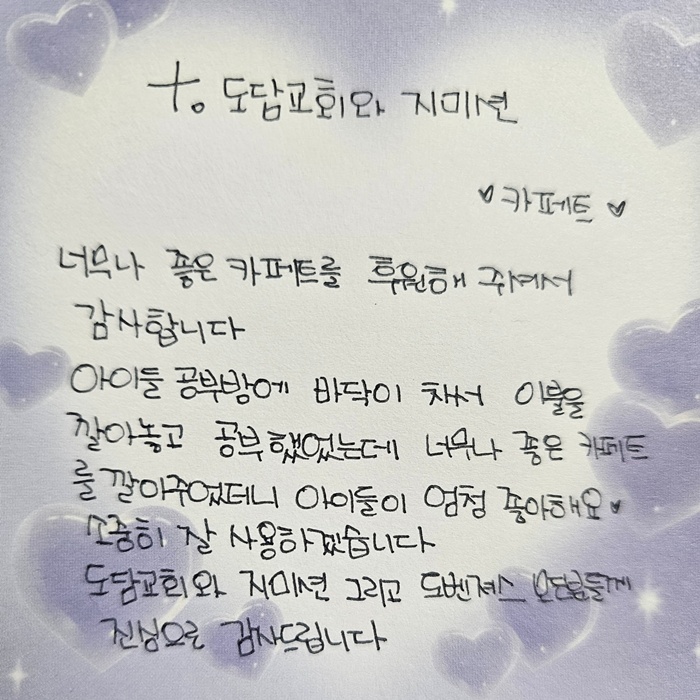 †. 도담교회와 지미션
♥ 카페트 ♥
너무나 좋은 카페트를 후원해 주셔서
감사합니다
아이들 공부방에 바닥이 차서 이불을
깔아놓고 공부했었는데 너무나 좋은 카페트
를 깔아주었더니 아이들이 엄청 좋아해요♥
소중히 잘 사용하겠습니다
도담교회와 지미션 그리고 도벤져스 모든분들께
진심으로 감사드립니다